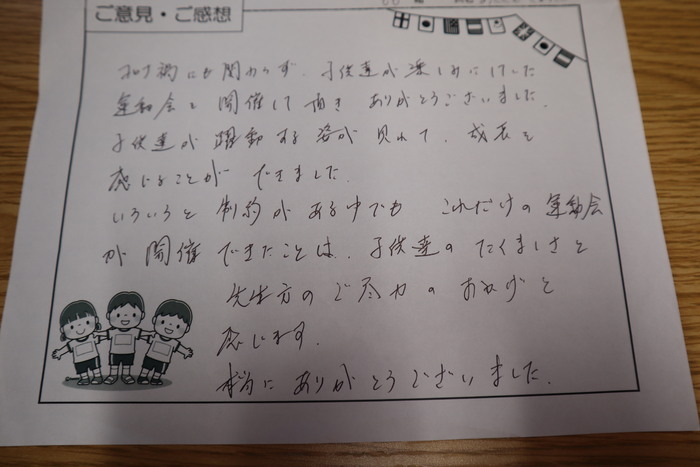 ご意見・ご感想
コロナ禍にも関わらず、子供達が楽しみにしてた
運動会を開催して頂き ありがとうございました。
子供達が躍動する姿が見れて、成長を
感じることができました。
いろいろと制約がある中でも これだけの運動会
が開催できたことは、子供達のたくましさと
先生方のご尽力のおかげと
感じます。
本当にありがとうございました。